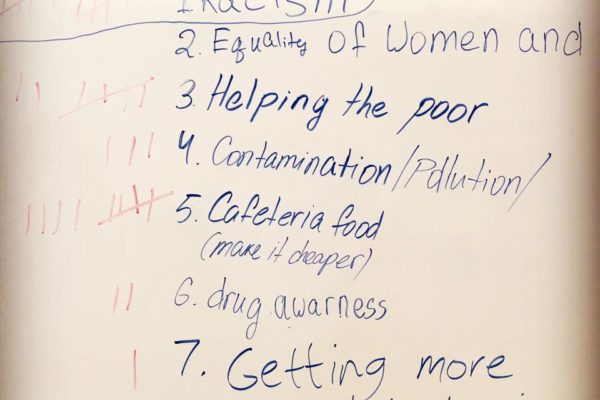 1 Racism
2. Equality of Women and
3. Helping the poor
4. Contamination/Pollution/
5. Cafeteria food
(make it cheaper)
6. drug awarness
7. Getting more